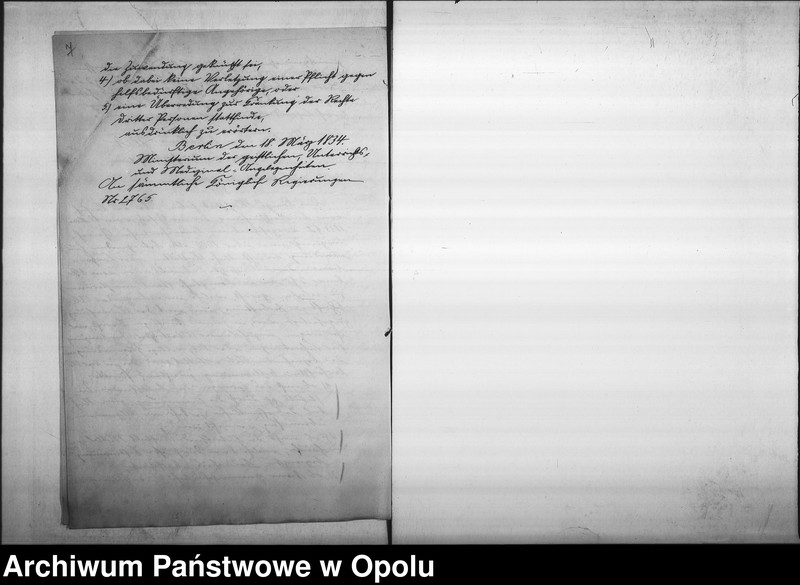 7
die Zuwendung geknüpft sei,
4.) ob dabei keine Verletzung einer Pflicht gegen
hülfsbedürftige Angehörige, oder
5) eine Überredung zur Kränkung der Rechte
dritter Personen stattfinde,
ausdrücklich zu erörtern.
Berlin den 18 März 1834.
Ministerium der geistlichen, Unterrichts-
und Medizinal-Angelegenheiten.
An sämmtliche Königliche Regierungen
Nr 2765
Archiwum Państwowe w Opolu